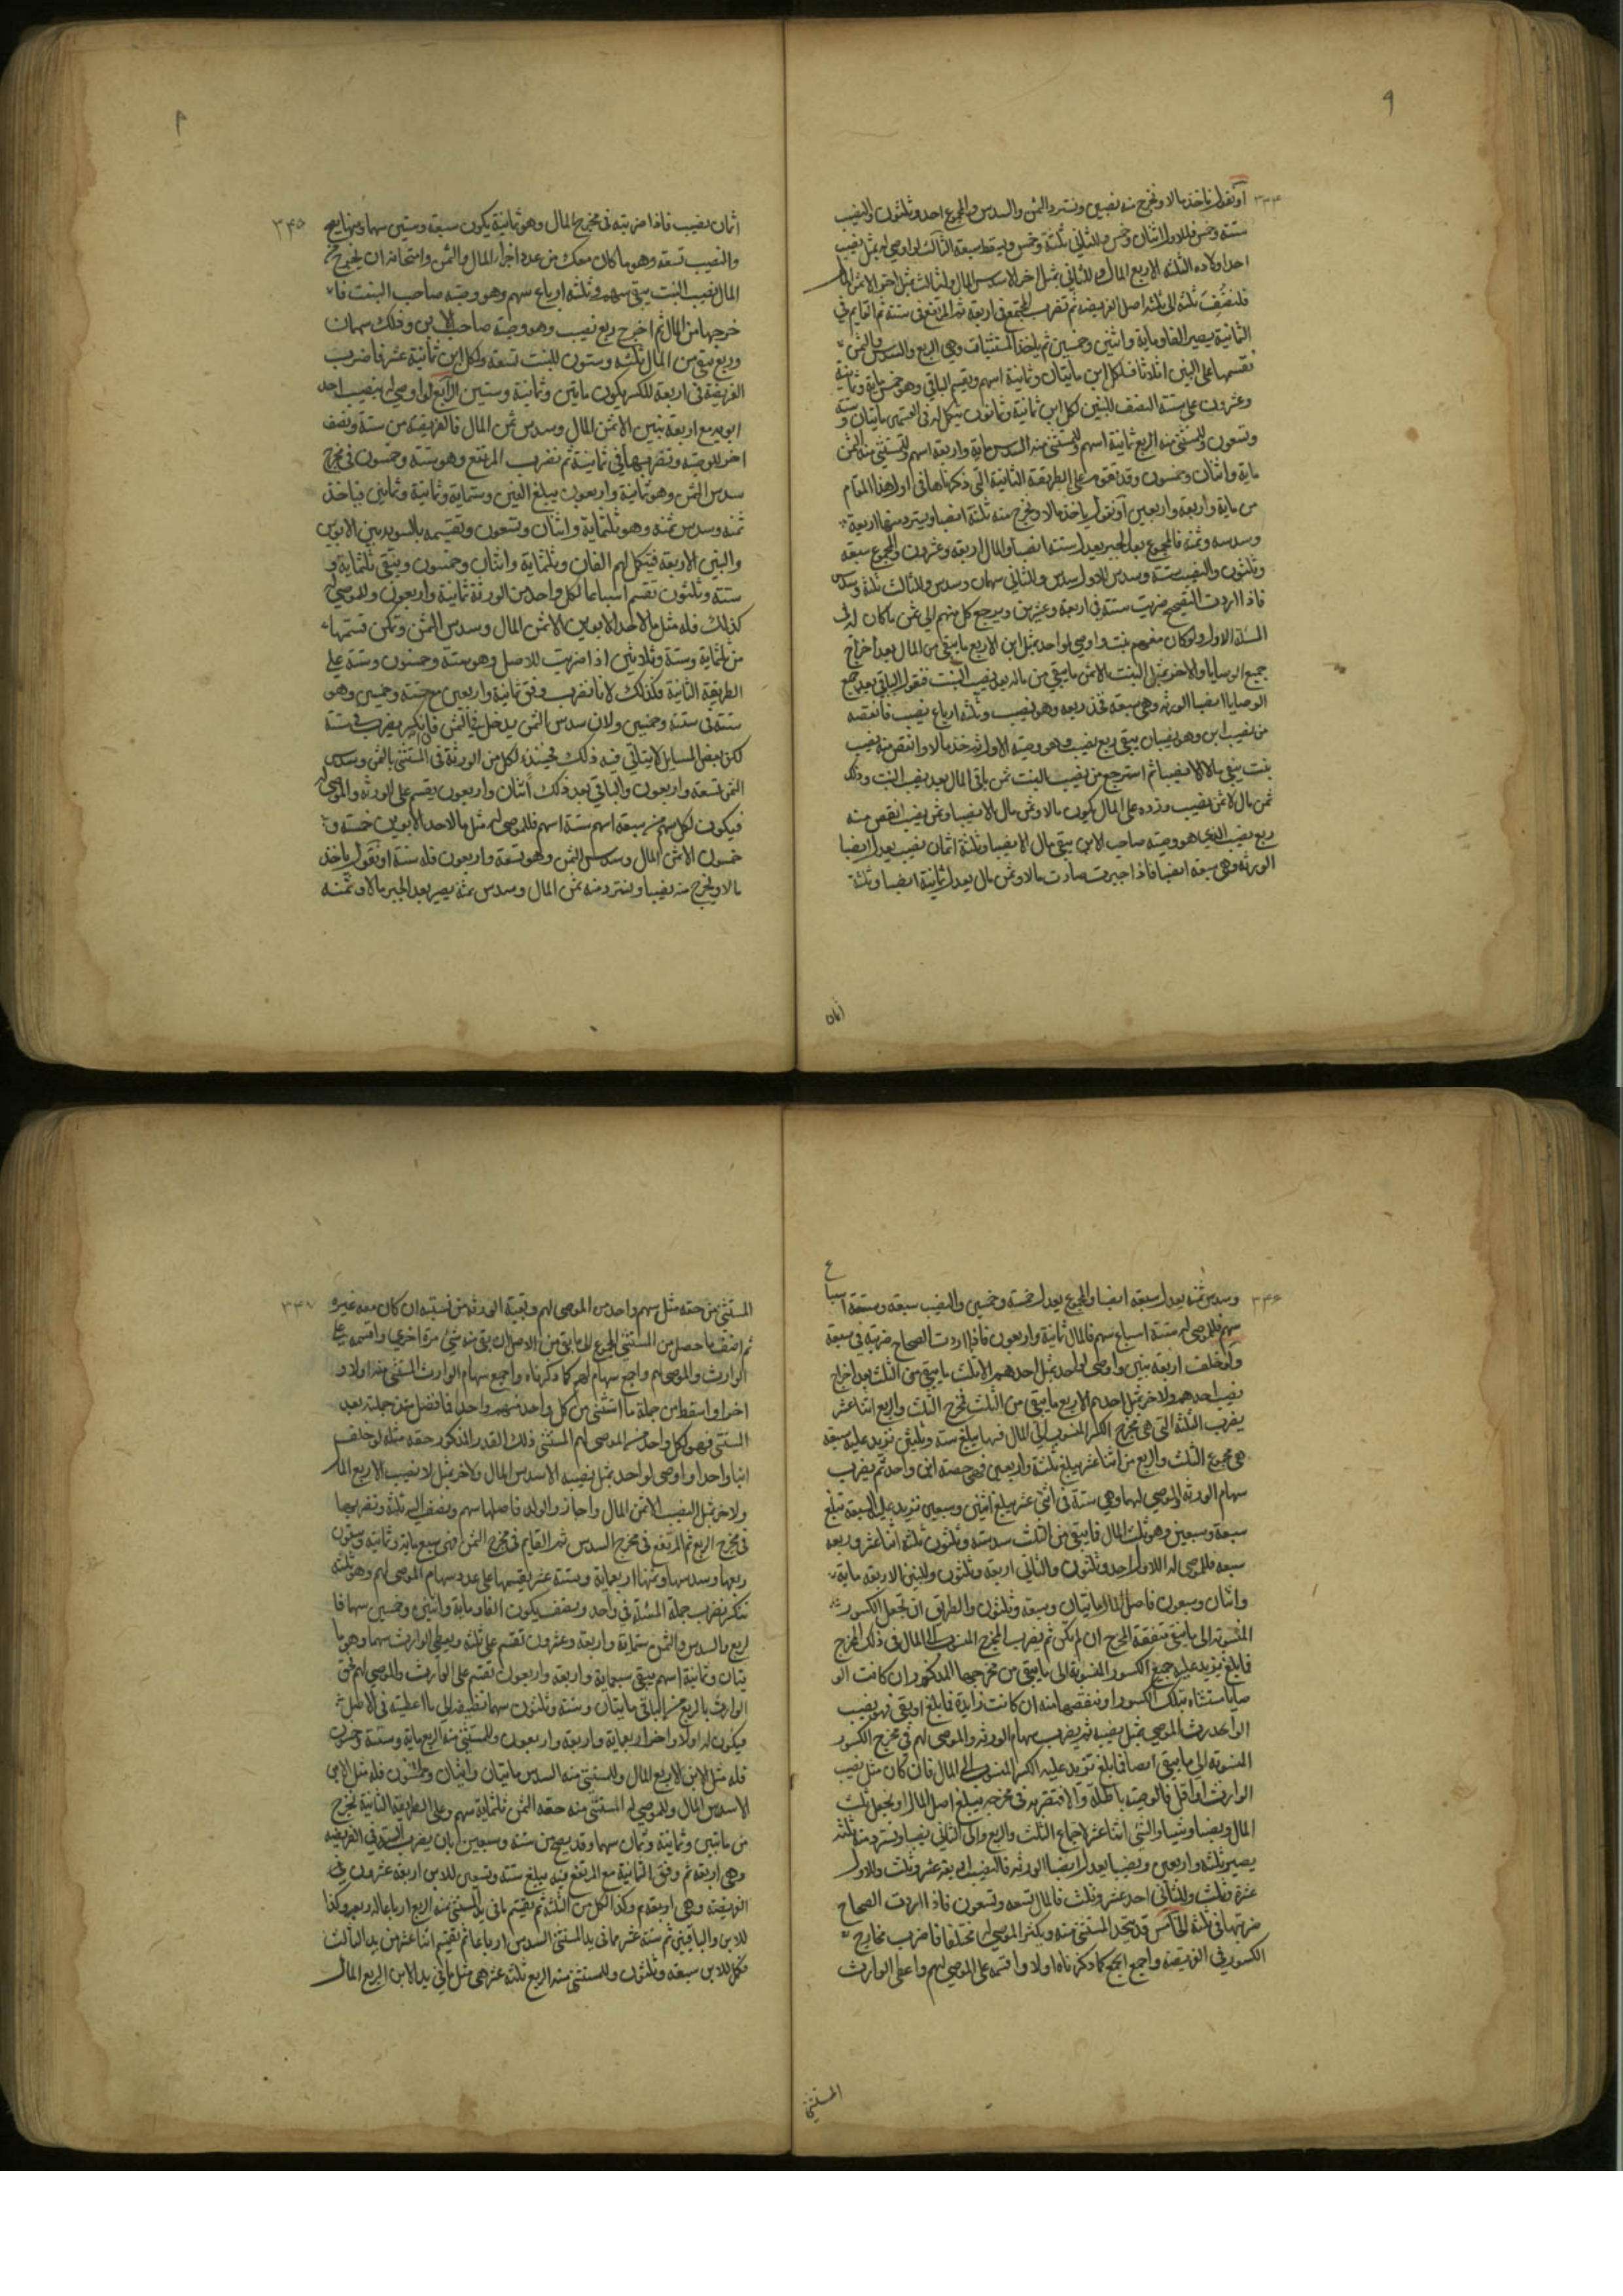 ٩
٣٤٤
او نقول ناخذ مالا ونخرج منه نصيبين ونسترد الثمن والسدس والمجموع احد وثلثون والنصيب
ستة وخمس فللاول اثنان وخمس وللثاني ثلثة وخمس ويسقط سبعة الثالث لو اوصى له بمثل نصيب
احد اولاده الثلثة الا ربع المال وللثاني بمثل اخر الا سدس المال ولثالث مثل اخر الا ثمن المال
فلنضف ثلثة الى ثلثة اصل الفريضة ثم تضرب المجتمع في اربعة ثم المرتفع في ستة ثم القايم في
الثمانية يصير الفا وماية واثنين وخمسين ثم ياخذ المستثنيات وهي الربع والسدس والثمن
نقسمها على البنين اثلاثا فلكل ابن مايتان وثمانية اسهم ويقسم الباقي وهو خمس ماية وثمانية
وعشرون على ستة النصف للبنين لكل ابن ثمانية وثمانون يكمل له في القسمين مايتان وستة
وتسعون وللمستثنى منه الربع ثمانية اسهم وللمستثنى منه السدس ماية واربعة اسهم وللمستثنى منه الثمن
ماية واثنان وخمسون وقد تقوم على الطريقة الثانية التي ذكرناها في اول هذا المقام
من ماية واربعة واربعين او نقول ياخذ مالا ونخرج منه ثلثة انصبا ويسترد منها اربعة
وسدسه وثمنه فالمجموع بعد الجبر يعدل ستة انصبا والمال اربعة وعشرون والمجموع سبعة
وثلثون والنصيب ستة وسدس للاول سدس وللثاني سهمان وسدس وللثالث ثلثة وسدس
فاذا اردت التصحيح ضربت ستة في اربعة وعشرين ويرجع كل منهم الى ثمن ما كان له في
المسئلة الاولى ولو كان معهم بنت واوصى لواحد بمثل ابن الا ربع ما يبقى من المال بعد اخراج
جميع الوصايا ولاخر بمثل البنت الا ثمن ما يبقى من ماله بعد نصيب البنت فنقول الباقي بعد جميع
الوصايا انصبا الورثة وهي سبعة فخذ ربعه وهو نصيب وثلثة ارباع نصيب فانقصه
من نصيب ابن وهو نصيبان يبقى ربع نصيب وهو وصيته الاولى ثم خذ مالا وانقص منه نصيب
بنت يبقى مالا الا نصيبا ثم استرجع من نصيب البنت ثمن باقي المال بعد نصيب البنت وذلك
ثمن مال الا ثمن نصيب وزده على المال يكون مالا وثمن مال الا نصيبا وثمن نصيب انقص منه
ربع نصيب الذي هو وصية صاحب الابن يبقى مال الا نصيبا وثلثة اثمان نصيب يعدل انصبا
الورثة وهي سبعة انصبا فاذا جبرت صارت مالا وثمن مال يعدل ثمانية انصبا وثلثة
اثمان
٣٤٥
اثمان نصيب فاذا ضربته في مخرج المال وهو ثمانية يكون سبعة وستين سهما ومنها يصح
والنصيب تسعة وهو ما كان معك من عدد اجزاء المال والثمن وامتحانه ان يخرج من
المال نصيب البنت يبقى سهم وثلثة ارباع سهم وهو وصية صاحب البنت فا
خرجها من المال ثم اخرج ربع نصيب وهو وصية صاحب الابن وذلك سهمان
وربع يبقى من المال ثلثة وستون للبنت تسعة ولكل ابن ثمانية عشر فاضرب
الفريضة في اربعة للكسر يكون مايتين وثمانية وستين الرابع لو اوصى له بنصيب احد
ابويه مع اربعة بنين الا ثمن المال وسدس ثمن المال فالفريضة من ستة ونضف
اخر للوصية ونضربها في ثمانية ثم نضرب المرتفع وهو ستة وخمسون في مخرج
سدس الثمن وهو ثمانية واربعون يبلغ الفين وستماية وثمانية وثمانين فياخذ
ثمنه وسدس ثمنه وهو ثلثماية واثنان وتسعون ونقسمه بالسوية بين الابوين
والبنين الاربعة فيكمل لهم الفان وثلثماية واثنان وخمسون ويبقى ثلثماية و
ستة وثلثون تقسم اسباعا لكل واحد من الورثة ثمانية واربعون وللموصى له
كذلك فله مثل ما لاحد الابوين الا ثمن المال وسدس الثمن ويمكن قسمتها
من ثلثماية وستة وثلاثين اذا ضربت للاصل وهو ستة وخمسون وستة على
الطريقة الثانية فكذلك لانا نضرب وفق ثمانية واربعين مع ستة وخمسين وهو
ستة في ستة وخمسين ولان سدس الثمن يدخل فيه الثمن فلم يضرب في ستة
لكن بعض المسايل لا يتاتى فيه ذلك فحينئذ لكل من الورثة في المستثنى بالثمن وسدس
الثمن تسعة واربعون والباقي بعد ذلك اثنان واربعون يقسم على الورثة والموصى له
فيكون لكل سهم من سبعة اسهم ستة اسهم فللموصى له مثل ما لاحد الابوين خمسة و
خمسون الا ثمن المال وسدس الثمن وهو تسعة واربعون فله ستة او نقول ياخذ
مالا ويخرج منه نصيبا ويسترد منه ثمن المال وسدس ثمنه يصير بعد الجبر مالا وثمنه
٣٤٦
وسدس ثمنه يعدل سبعة انصبا والمجموع يعدل خمسة وخمسين والنصيب سبعة وستة اسباع
سهم فللموصى له ستة اسباع سهم فالمال ثمانية واربعون فاذا اردت الصحاح ضربته في سبعة
ولو خلف اربعة بنين واوصى لواحد بمثل احدهم الا ثلث ما يبقى من الثلث بعد اخراج
نصيب احدهم ولاخر بمثل احدهم الا ربع ما يبقى من الثلث فخرج الثلث والربع اثنا عشر
يضرب الثلثة التي هي مخرج الكسر المنسوب الى المال فيها يبلغ ستة وثلثين نزيد عليه سبعة
هي مجموع الثلث والربع من اثنا عشر يبلغ ثلثة واربعين فهي حصة ابن واحد ثم يضرب
سهام الورثة والموصى لهما وهي ستة في اثنى عشر يبلغ اثنين وسبعين نزيد عليه السبعة تبلغ
تسعة وسبعين وهو ثلث المال فا يبقى من الثلث ستة وثلثون ثلثه اثنا عشر وربعه
تسعة فللموصى له الاول احد وثلثون والثاني اربعة وثلثون وللبنين الاربعة ماية
واثنان وسبعون فاصل المال مايتان وسبعة وثلثون والطريق ان تجعل الكسور
المنسوبة الى ما يبقى متفقة المخرج ان لم يكن ثم يضرب المخرج المنسوب الى المال في ذلك المخرج
فما بلغ نزيد عليه جميع الكسور المنسوبة الى ما يبقى من مخرجها المذكور ان كانت الو
صايا مستثناه بتلك الكسور او ننقصها منه ان كانت زايدة فما بلغ او بقي فهو نصيب
الواحد من الموصى بمثل نصيبه ثم يضرب سهام الورثة والموصى لهم في مخرج الكسور
المنسوبة الى ما يبقى ايضا فما بلغ نزيد عليه الكسر المنسوب الى المال فان كان مثل نصيب
الوارث او اقل فالوصية باطلة والا فتضربه في مخرجه يبلغ اصل المال او نجعل ثلث
المال ونصيبا وشيا والشي اثنا عشر لاجتماع الثلث والربع والى الثاني نصيبا ونسترد منه ثلثه
يصير ثلثة واربعين ونصيبا يعدل انصبا الورثة فالنصيب اربعة عشر وثلث وللاول
عشرة وثلث وللثاني احد عشر وثلث فالمال تسعة وسبعون فاذا اردت الصحاح
ضربتها في ثلثة الخامس قد يتحد المستثنى منه ويكثر الموصى له مختلفا فاضرب مخارج
الكسور في الفريضة واجمع الجميع كما ذكرناه اولا واقسمه على الموصى لهم واعط الوارث
المستثنى
٣٤٧
المستثنى من حقه مثل سهم واحد من الموصى لهم وبقية الورثة من نسبته ان كان معه غيره
ثم اضف ما حصل من المستثنى المجموع الى ما بقي من الاصل ان بقي منه شي مرة اخرى واقسمه على
الوارث والموصى لهم واجمع سهام لهم كما ذكرناه واجمع سهام الوارث المستثنى منه اولا و
اخرا واسقط من جملة ما استثنى من كل واحد منهم واحدا فما فضل من جملته بعد
المستثنى فهو لكل واحد من الموصى لهم المستثنى ذلك القدر المذكور حقه مثله لو خلف
ابنا واحدا واوصى لواحد بمثل نصيبه الا سدس المال ولاخر بمثل النصيب الا ربع المال
ولاخر بمثل النصيب الا ثمن المال واجاز الولد فاصلها سهم ونضف اليه ثلثة ونضربها
في مخرج الربع ثم المرتفع في مخرج السدس ثم القايم في مخرج الثمن فهي سبع ماية وثمانية وستون
ربعها وسدسها وثمنها اربعماية وستة عشر يقسمها على عدد سهام الموصى لهم وهو ثلثة
تنكسر نضرب جملة المسئلة في واحد ونصف يكون الفا وماية واثنين وخمسين سهما فا
لربع والسدس والثمن ستماية واربعة وعشرون تقسم على ثلثة ويعطى الوارث سهما وهو ما
يتان وثمانية اسهم يبقى تسعماية واربعة واربعون تقسم على الوارث والموصى لهم فحق
الوارث بالربع من الباقي مايتان وستة وثلثون سهما نضيفه الى ما اعطيته في الاصل
فيكون له اولا واخرا اربعماية واربعة واربعون وللمستثنى منه الربع ماية وستة وخمسون
فله مثل الابن الا ربع المال وللمستثنى منه السدس مايتان واثنان وخمسون فله مثل الابن
الا سدس المال وللموصى له المستثنى منه حقه الثمن ثلثماية سهم وعلى الطريقة الثانية تخرج
من مايتين وثمانية وثمانين سهما وقد يصح من ستة وتسعين بان يضرب الستة في الفريضة
وهي اربعة ثم وفق الثمانية مع المرتفع فيه يبلغ ستة وتسعين للابن اربعة عشرون في
الفريضة وهي اربعة وكذا لكل من الثلثة ثم يقسم ما في يد المستثنى منه الربع ارباعا له ربعه وكذا
للابن والباقيين ثم ستة عشر مما في يد المستثنى السدس ارباعا ثم يقسم اثنا عشر من يد الثالث
فكمل للابن سبعة وثلثون وللمستثنى منه الربع ثلثة عشر هي مثل ما في يد الابن الا ربع المال